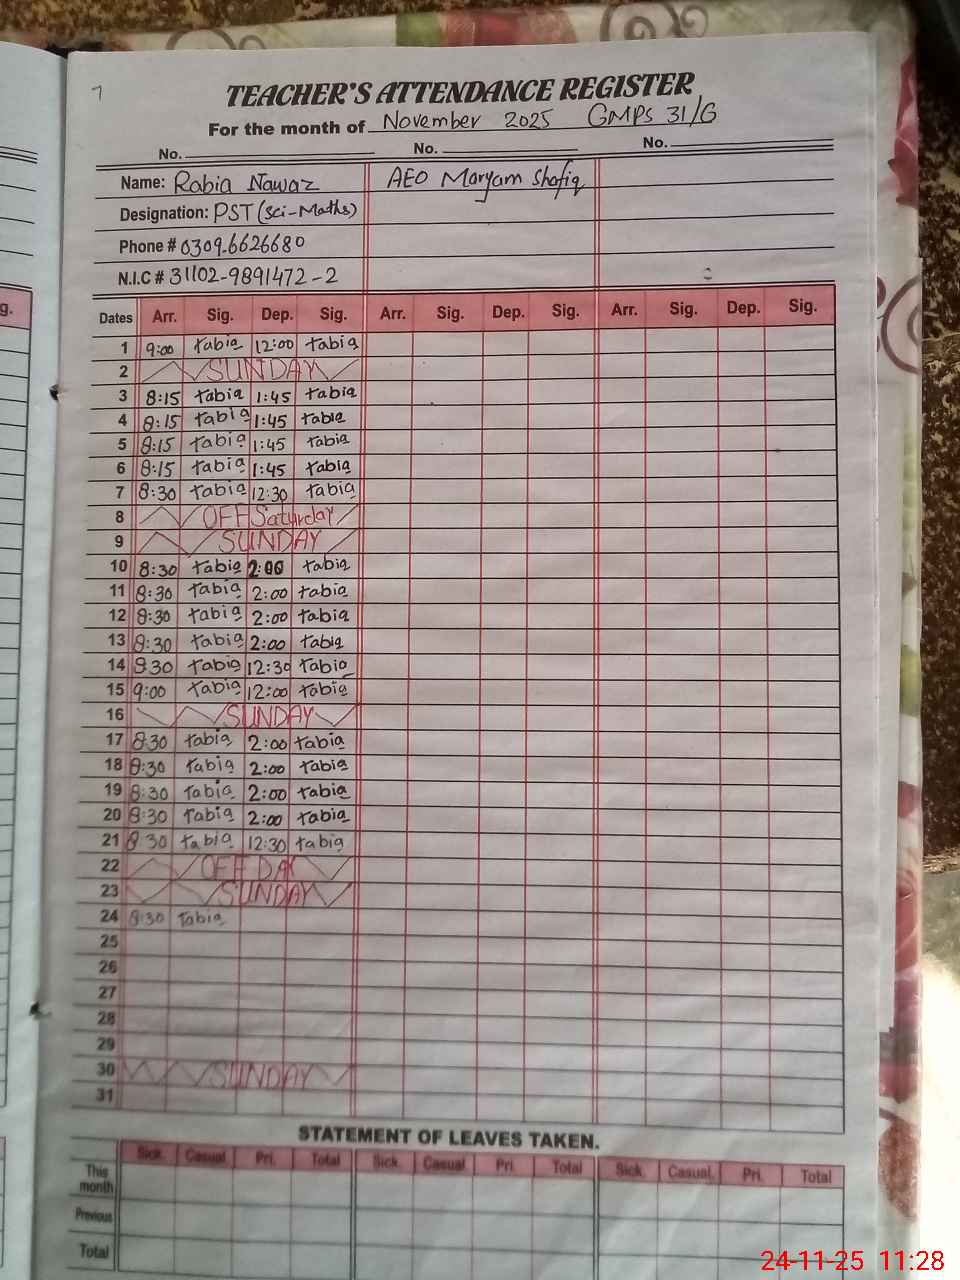 7
TEACHER'S ATTENDANCE REGISTER
For the month of November 2025 GMPS 31/G
No. No. No.
Name: Rabia Nawaz AEO Maryam Shafiq
Designation: PST (Sci-Maths)
Phone # 0309-6626680
N.I.C # 31102-9891472-2
g.
Dates Arr. Sig. Dep. Sig. Arr. Sig. Dep. Sig. Arr. Sig. Dep. Sig.
1 9:00 rabia 12:00 rabia
2 SUNDAY
3 8:15 rabia 1:45 rabia
4 8:15 rabia 1:45 rabia
5 8:15 rabia 1:45 rabia
6 8:15 rabia 1:45 rabia
7 8:30 rabia 12:30 rabia
8 OFF Saturday
9 SUNDAY
10 8:30 rabia 2:00 rabia
11 8:30 rabia 2:00 rabia
12 8:30 rabia 2:00 rabia
13 8:30 rabia 2:00 rabia
14 8:30 rabia 12:30 rabia
15 9:00 rabia 12:00 rabia
16 SUNDAY
17 8:30 rabia 2:00 rabia
18 8:30 rabia 2:00 rabia
19 8:30 rabia 2:00 rabia
20 8:30 rabia 2:00 rabia
21 8:30 rabia 12:30 rabia
22 OFF DAY
23 SUNDAY
24 8:30 rabia
25
26
27
28
29
30 SUNDAY
31
STATEMENT OF LEAVES TAKEN.
Sick. Casual. Pri. Total Sick. Casual. Pri. Total Sick. Casual. Pri. Total
This month
Previous
Total
24-11-25 11:28